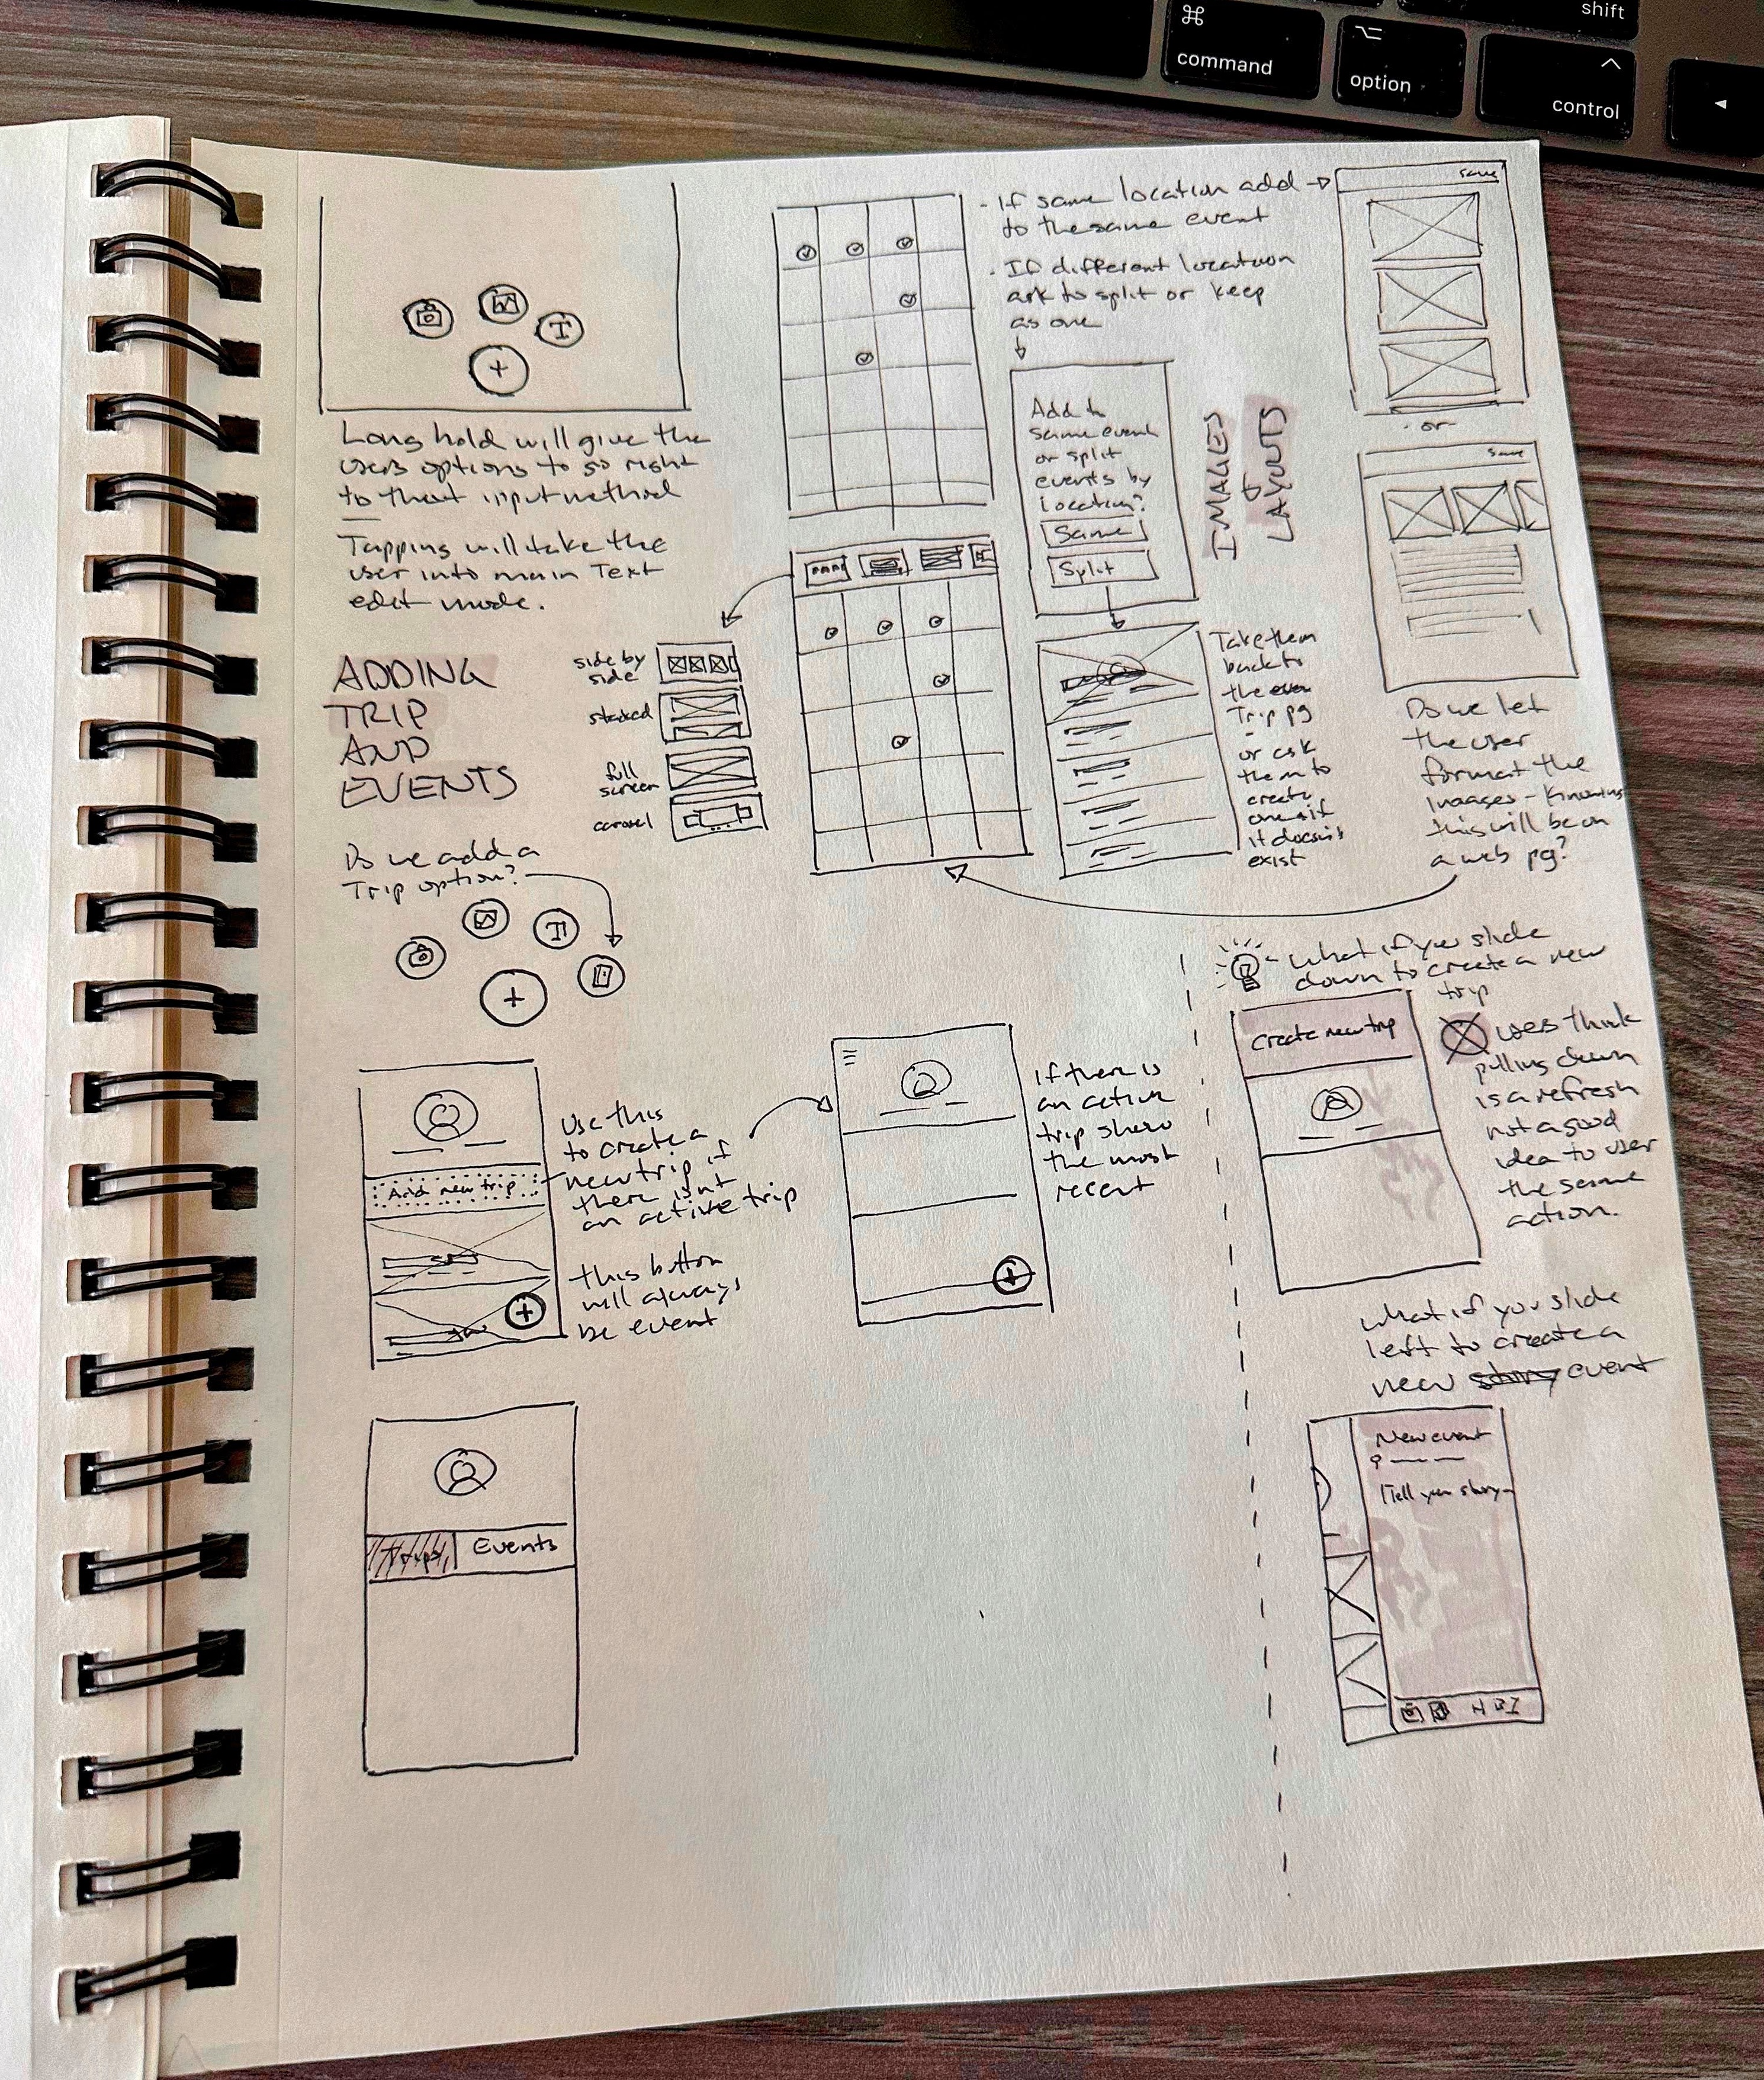 shift
command
option
control
Long hold will give the
users options to go right
to that input method
Tapping will take the
user into main Text
edit mode.
ADDING
TRIP
AND
EVENTS
side by
side
stacked
full
screen
Do we add a
Trip option?
- If same location add
to the same event
- If different location
ask to split or keep
as one
Add to
same event
or split
events by
location?
Same
Split
IMAGES
LAYOUTS
save
- or -
save
Take them
back to
the
Trip pg
or ask
them to
create
one if
it doesn't
exist
Do we let
the user
format the
images - knowing
this will be on
a web pg?
Add new trip
Use this
to create a
new trip if
there isn't
an active trip
this button
will always
be event
if there is
an active
trip show
the most
recent
Trips
Events
what if you slide
down to create a new
trip
create new trip
users think
pulling down
is a refresh
not a good
idea to user
the same
action.
what if you slide
left to create a
new story event
New event
Tell your story
H B I